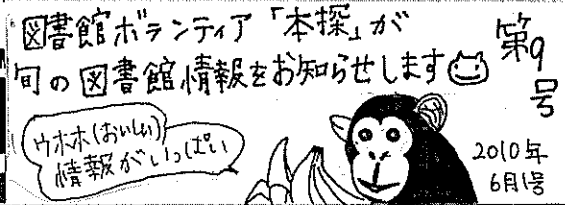 図書館ボランティア「本探」が
旬の図書館情報をお知らせします
第9号
ウホホ(おいしい)
情報がいっぱい
2010年
6月号